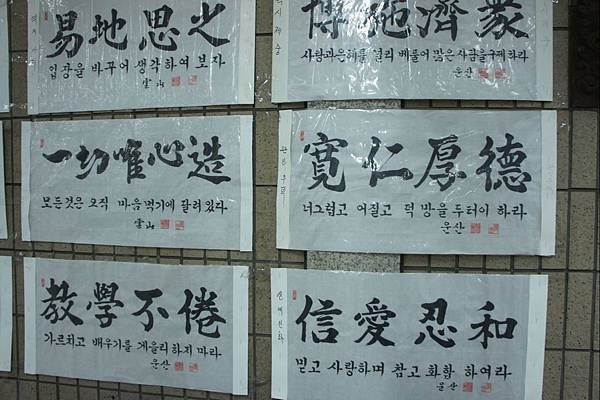 易地思之
입장을 바꾸어 생각하여 보자
雲山
博施濟衆
사랑과 은혜를 널리 베풀어 많은 사람을 구제하라
운산
一切唯心造
모든것은 오직 마음먹기에 달려있다
雲山
寬仁厚德
너그럽고 어질고 덕망을 두터이 하라
운산
敎學不倦
가르치고 배우기를 게을리하지 마라
운산
信愛忍和
믿고 사랑하며 참고 화합 하여라
운산